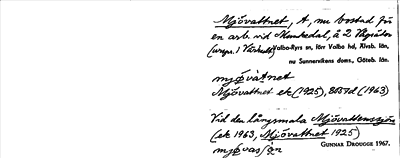 Mjövattnet, A, nu bostad för
en arb. vid Munkedal, å 2 Vågsäter
(urspr. 1 Vässtult) Valbo-Ryrs sn, förr Valbo hd, Älvsb. län,
nu Sunnervikens doms., Göteb. län.
mjø̀vàtnet
Mjövattnet ek (1925), (1963)
Vid den långsmala Mjövattensjön
(ek 1963, Mjövattnet 1925)
mjø̀vasjǿn
GUNNAR DROUGGE 1967.